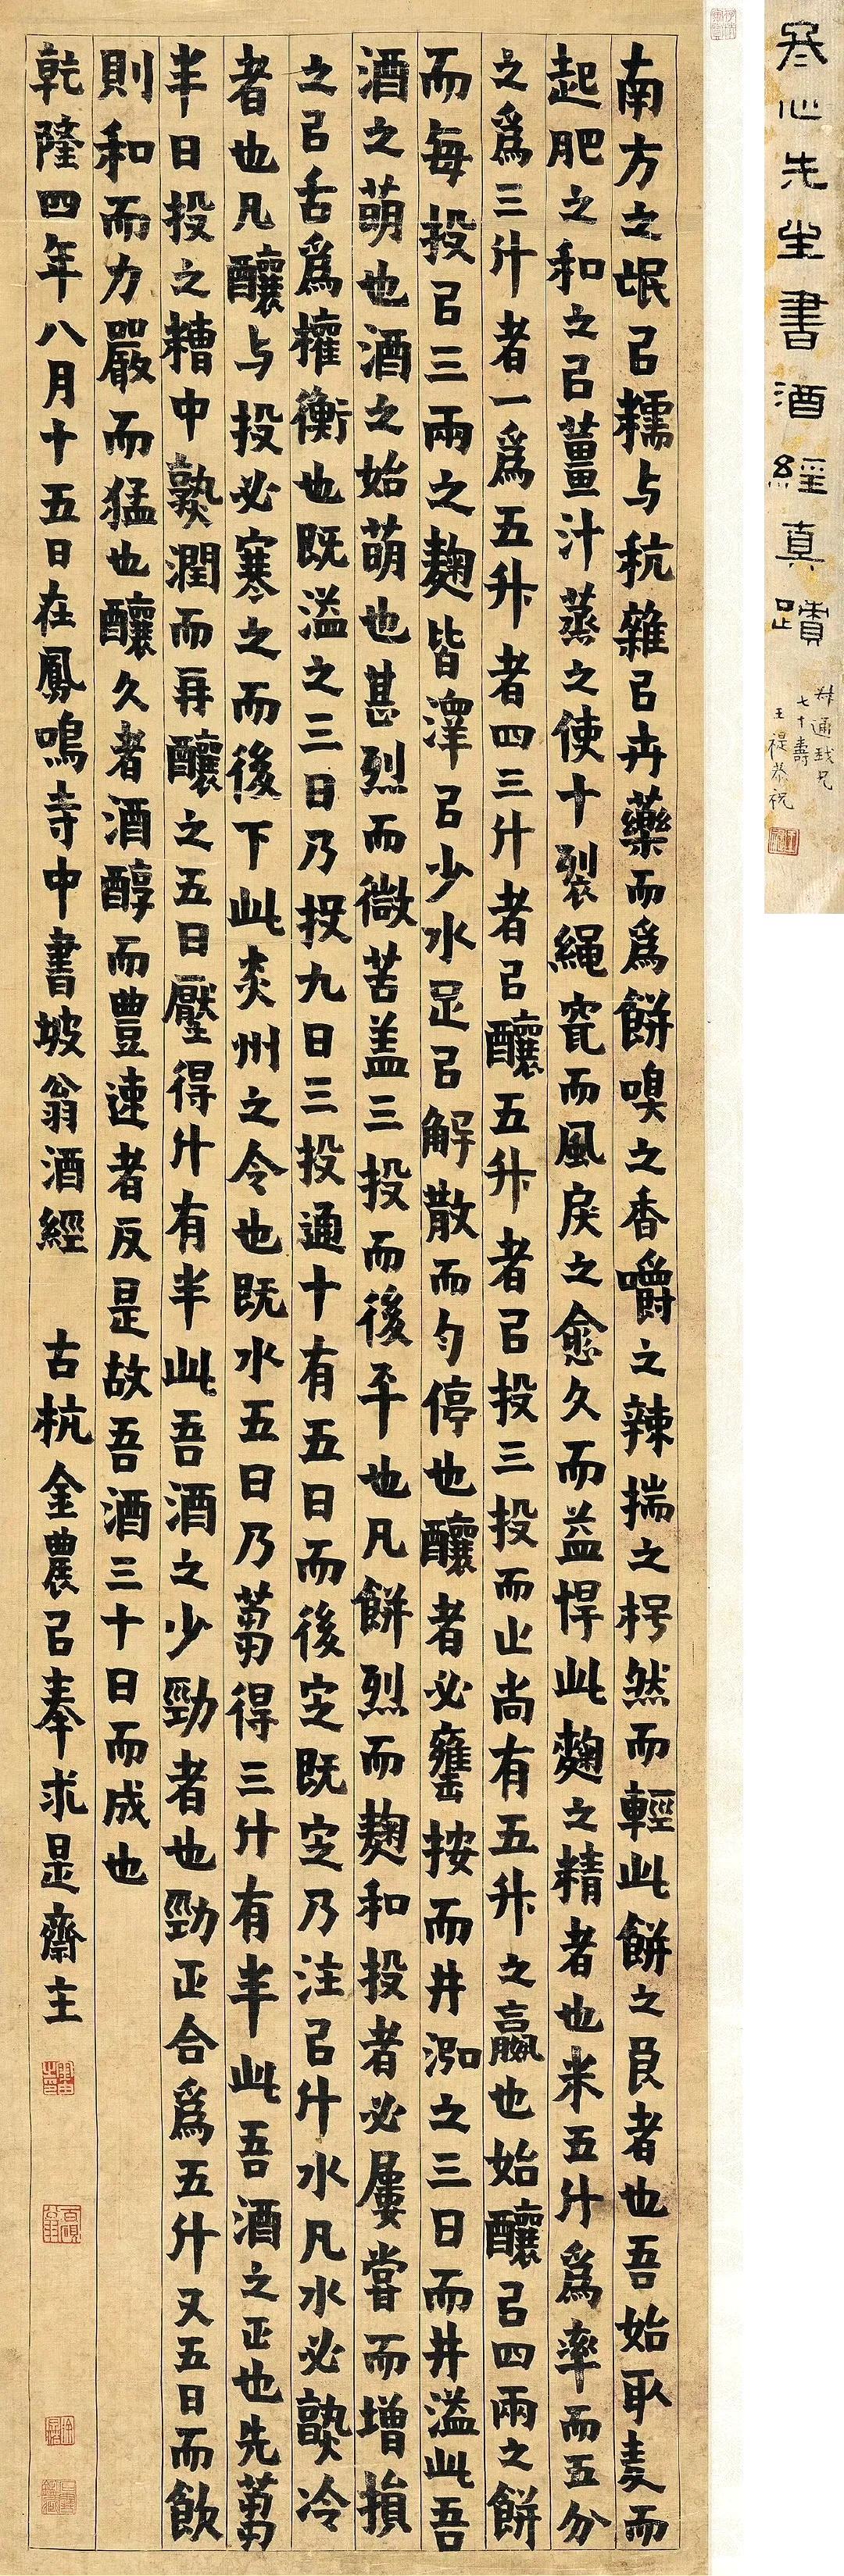 冬心先生書酒經真蹟
叔通我兄
七十壽
王禔恭祝
南方之氓㠯糯与秔雜㠯卉藥而爲餅嗅之香嚼之辣揣之枵然而輕此餅之良者也吾始取麦而
起肥之和之㠯薑汁蒸之使十裂繩穿而風戾之愈久而益悍此麴之精者也米五斗爲率而五分
之爲三斗者一爲五升者四三斗者㠯釀五升者㠯投三投而止尚有五升之贏也始釀㠯四兩之餅
而每投㠯三兩之麴皆澤㠯少水足㠯解散而勻停也釀者必甕按而井泓之三日而井溢此吾
酒之萌也酒之始萌也甚烈而微苦盖三投而後平也凡餅烈而麴和投者必屢嘗而增損
之㠯舌爲權衡也既溢之三日乃投九日三投通十有五日而後定既定乃注㠯斗水凡水必熟冷
者也凡釀与投必寒之而後下此炎州之令也既水五日乃篘得三斗有半此吾酒之正也先篘
半日投之糟中熟潤而再釀之五日壓得斗有半此吾酒之少勁者也勁正合爲五斗又五日而飲
則和而力嚴而猛也釀久者酒醇而豊速者反是故吾酒三十日而成也
乾隆四年八月十五日在鳳鳴寺中書坡翁酒經 古杭金農㠯奉求是齋主